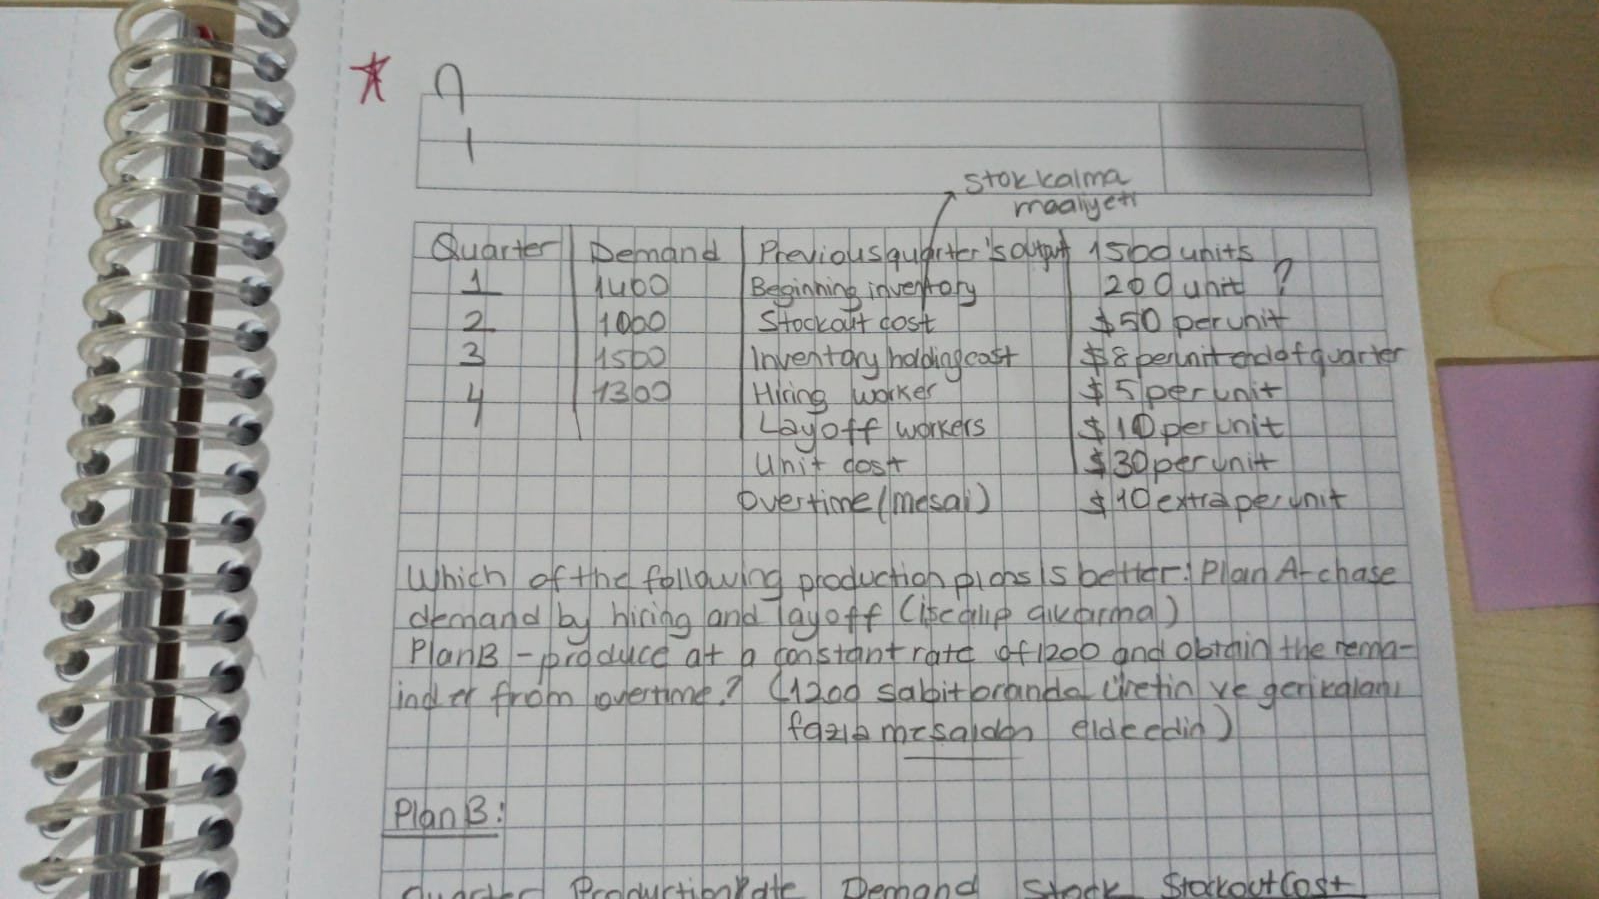 stok kalma
maaliyeti
Quarter Demand Previous quarter's output 1500 units
1 1400 Beginning inventory 200 unit ?
2 1000 Stockout cost $50 per unit
3 1500 Inventory holding cost $8 per unit end of quarter
4 1300 Hiring worker $5 per unit
Layoff workers $10 per unit
Unit cost $30 per unit
Overtime (mesai) $10 extra per unit
Which of the following production plans is better: Plan A- chase
demand by hiring and layoff (işe alıp çıkarma)
Plan B - produce at a constant rate of 1200 and obtain the rema-
inder from overtime? (1200 sabit oranda üretin ve geri kalanı
fazla mesaiden elde edin)
Plan B:
Quarter Production Rate Demand Stock Stockout Cost